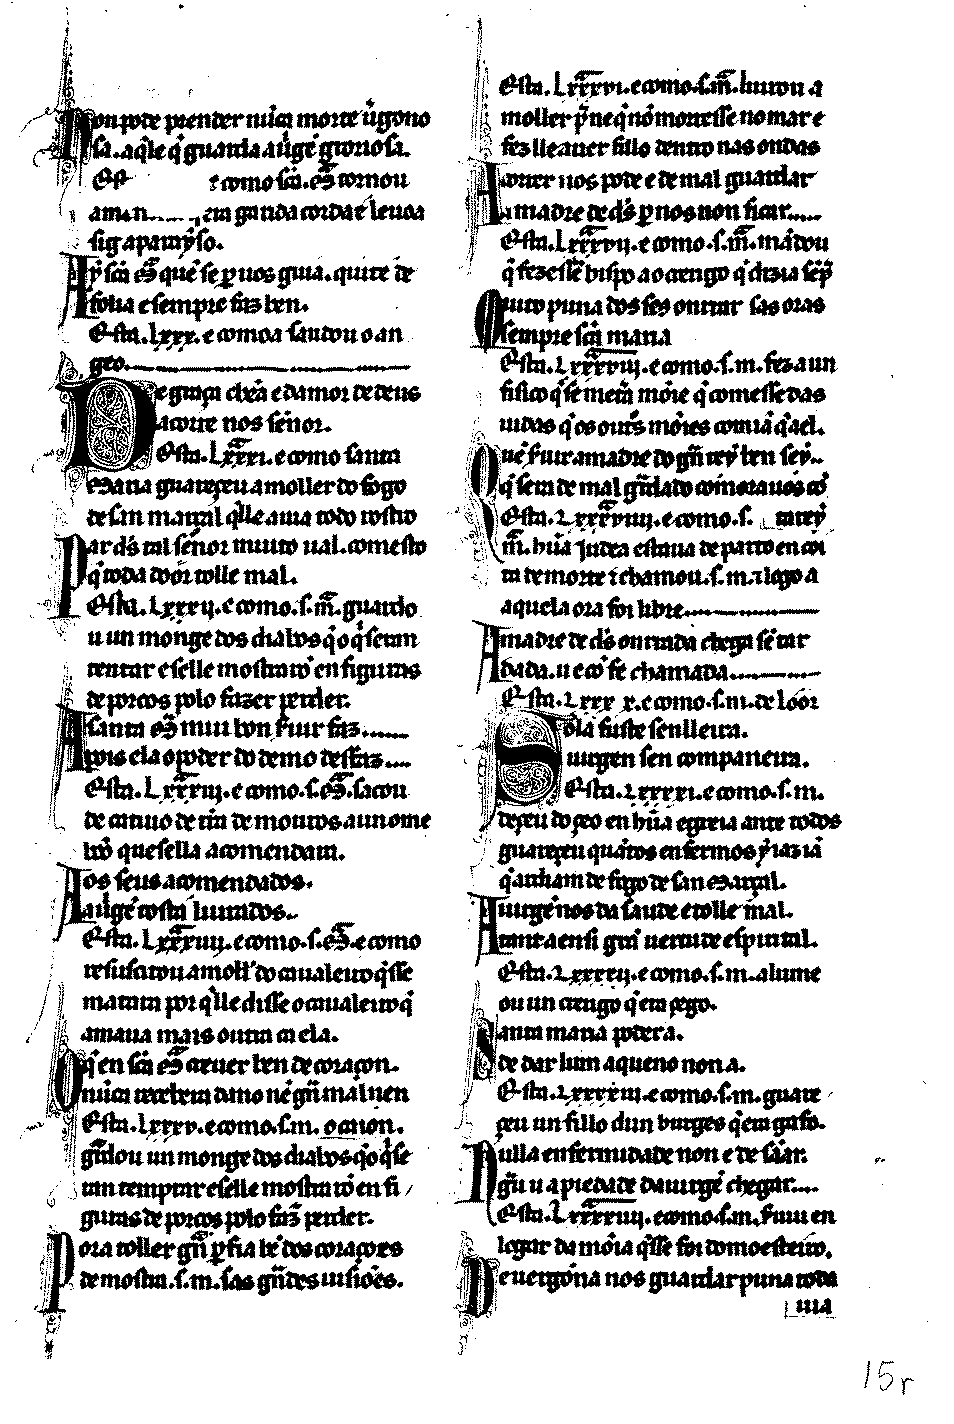 Non pode prender nũca morte ũgono
sa. aq̃le q̃ guarda a uirgẽ gloriosa.
como sc̃a. M̃ tornou
a garida corda e leuoa
sig a parayso.
Ay sc̃a M̃ quẽ se p̱ uos guia. quite de
folia e sempre faz ben.
Esta. Lxxx. e como a saudou o an
geo.
De graça chẽa e damor de deus
acorre nos sẽnor.
Esta. Lxxxi. e como santa
Maria guareçeu a moller do fogo
de san marçal q̃lle auia todo rostro
Par ds̃ tal sẽnor muito ual. comesto
q̃ toda door tolle mal.
Esta. Lxxxij. e como. s. m̃. guardo
u un monge dos diabos q̃o q̃seran
tentar e selle mostrarõ en figuras
de porcos polo fazer perder.
A santa M̃ mui bon seruir faz......
pois ela o poder do demo desfaz....
Esta. Lxxxiij. e como. s. M̃. sacou
de catiuo de t̃ra de mouros a un ome
bõo que sella acomendara.
Aos seus acomendados.
a uirgẽ tosta liurados..
Esta. Lxxxiiij. e como. s. M̃. e como
resuscitou a moll̃ do caualeiro q̃ sse
matara por q̃lle disse o caualeiro q̃
amaua mais outra ca ela.
O q̃ en sc̃a M̃ creuer ben de coraçon.
nũca recebera dano nẽ gr̃n mal nen
Esta. Lxxxv. e como. s. m. ocaion.
gr̃dou un monge dos diabos q̃o q̃se
ran temptar e selle mostrarõ en fi
guras de porcos polo faz̃ perder.
Pora toller gr̃n p̱fia bẽ dos coraçoes
demostra. s. m. sas gr̃ndes uisiões.
Esta. Lxxxvi. e como. s. m̃. liurou a
moller p̱ne q̃ nõ morresse no mar e
fez lle auer fillo dentro nas ondas
Acorrer nos pode e de mal guardar
a madre de ds̃ p̱ nos non ficar.....
Esta. Lxxxvij. e como. s. m̃. mãdou
q̃ fezessẽ bispo ao crerigo q̃ dizia sẽp̱
Muito puna dos ses onrrar sas oras
sempre sc̃a maria
Esta. Lxxxviij. e como. s. m. fez a un
fisico q̃ se metera mõie q̃ comesse das
uidas q̃ os outros mõies comiã q̃ ael.
Quẽ seruir a madre do gr̃n rey ben sey..
q̃ sera de mal gr̃dado com̃oraruos cõ
Esta. Lxxxviiij. e como. s. tarey
m̃. hũa judea estaua de parto en coi
ta de morte τ chamou. s. m. τ logo a
aquela ora foi libre.
A madre de ds̃ onrrada chega sẽ tar
dada. u e cõ fe chamada.
Esta. Lxxx x. e como. s. m. de loor
Sola fuste senlleira.
uirgen sen companeira.
Esta. Lxxxxi. e como. s. m.
deçeu do çeo en hũa egreia ante todos
guareçeu quãtos enfermos y iaziã
q̃ ardiam de fogo de san Marçal.
A uirgẽ nos da saude e tolle mal.
tant a en si gr̃n uertude espirital.
Esta. Lxxxxij. e como. s. m. alume
ou un crerigo q̃ era çego.
Santa maria podera.
de dar lum a queno non a.
Esta. Lxxxxiij. e como. s. m. guare
çeu un fillo dun burges q̃ era gafo.
Nulla enfermidade non e de sãar.
gr̃u u a piedade da uirgẽ chegar....
Esta. Lxxxxiiij. e como. s. m. seruiu en
logar da mõia q̃sse foi do moesteiro.
De uergõna nos guardar puna toda
uia
15r